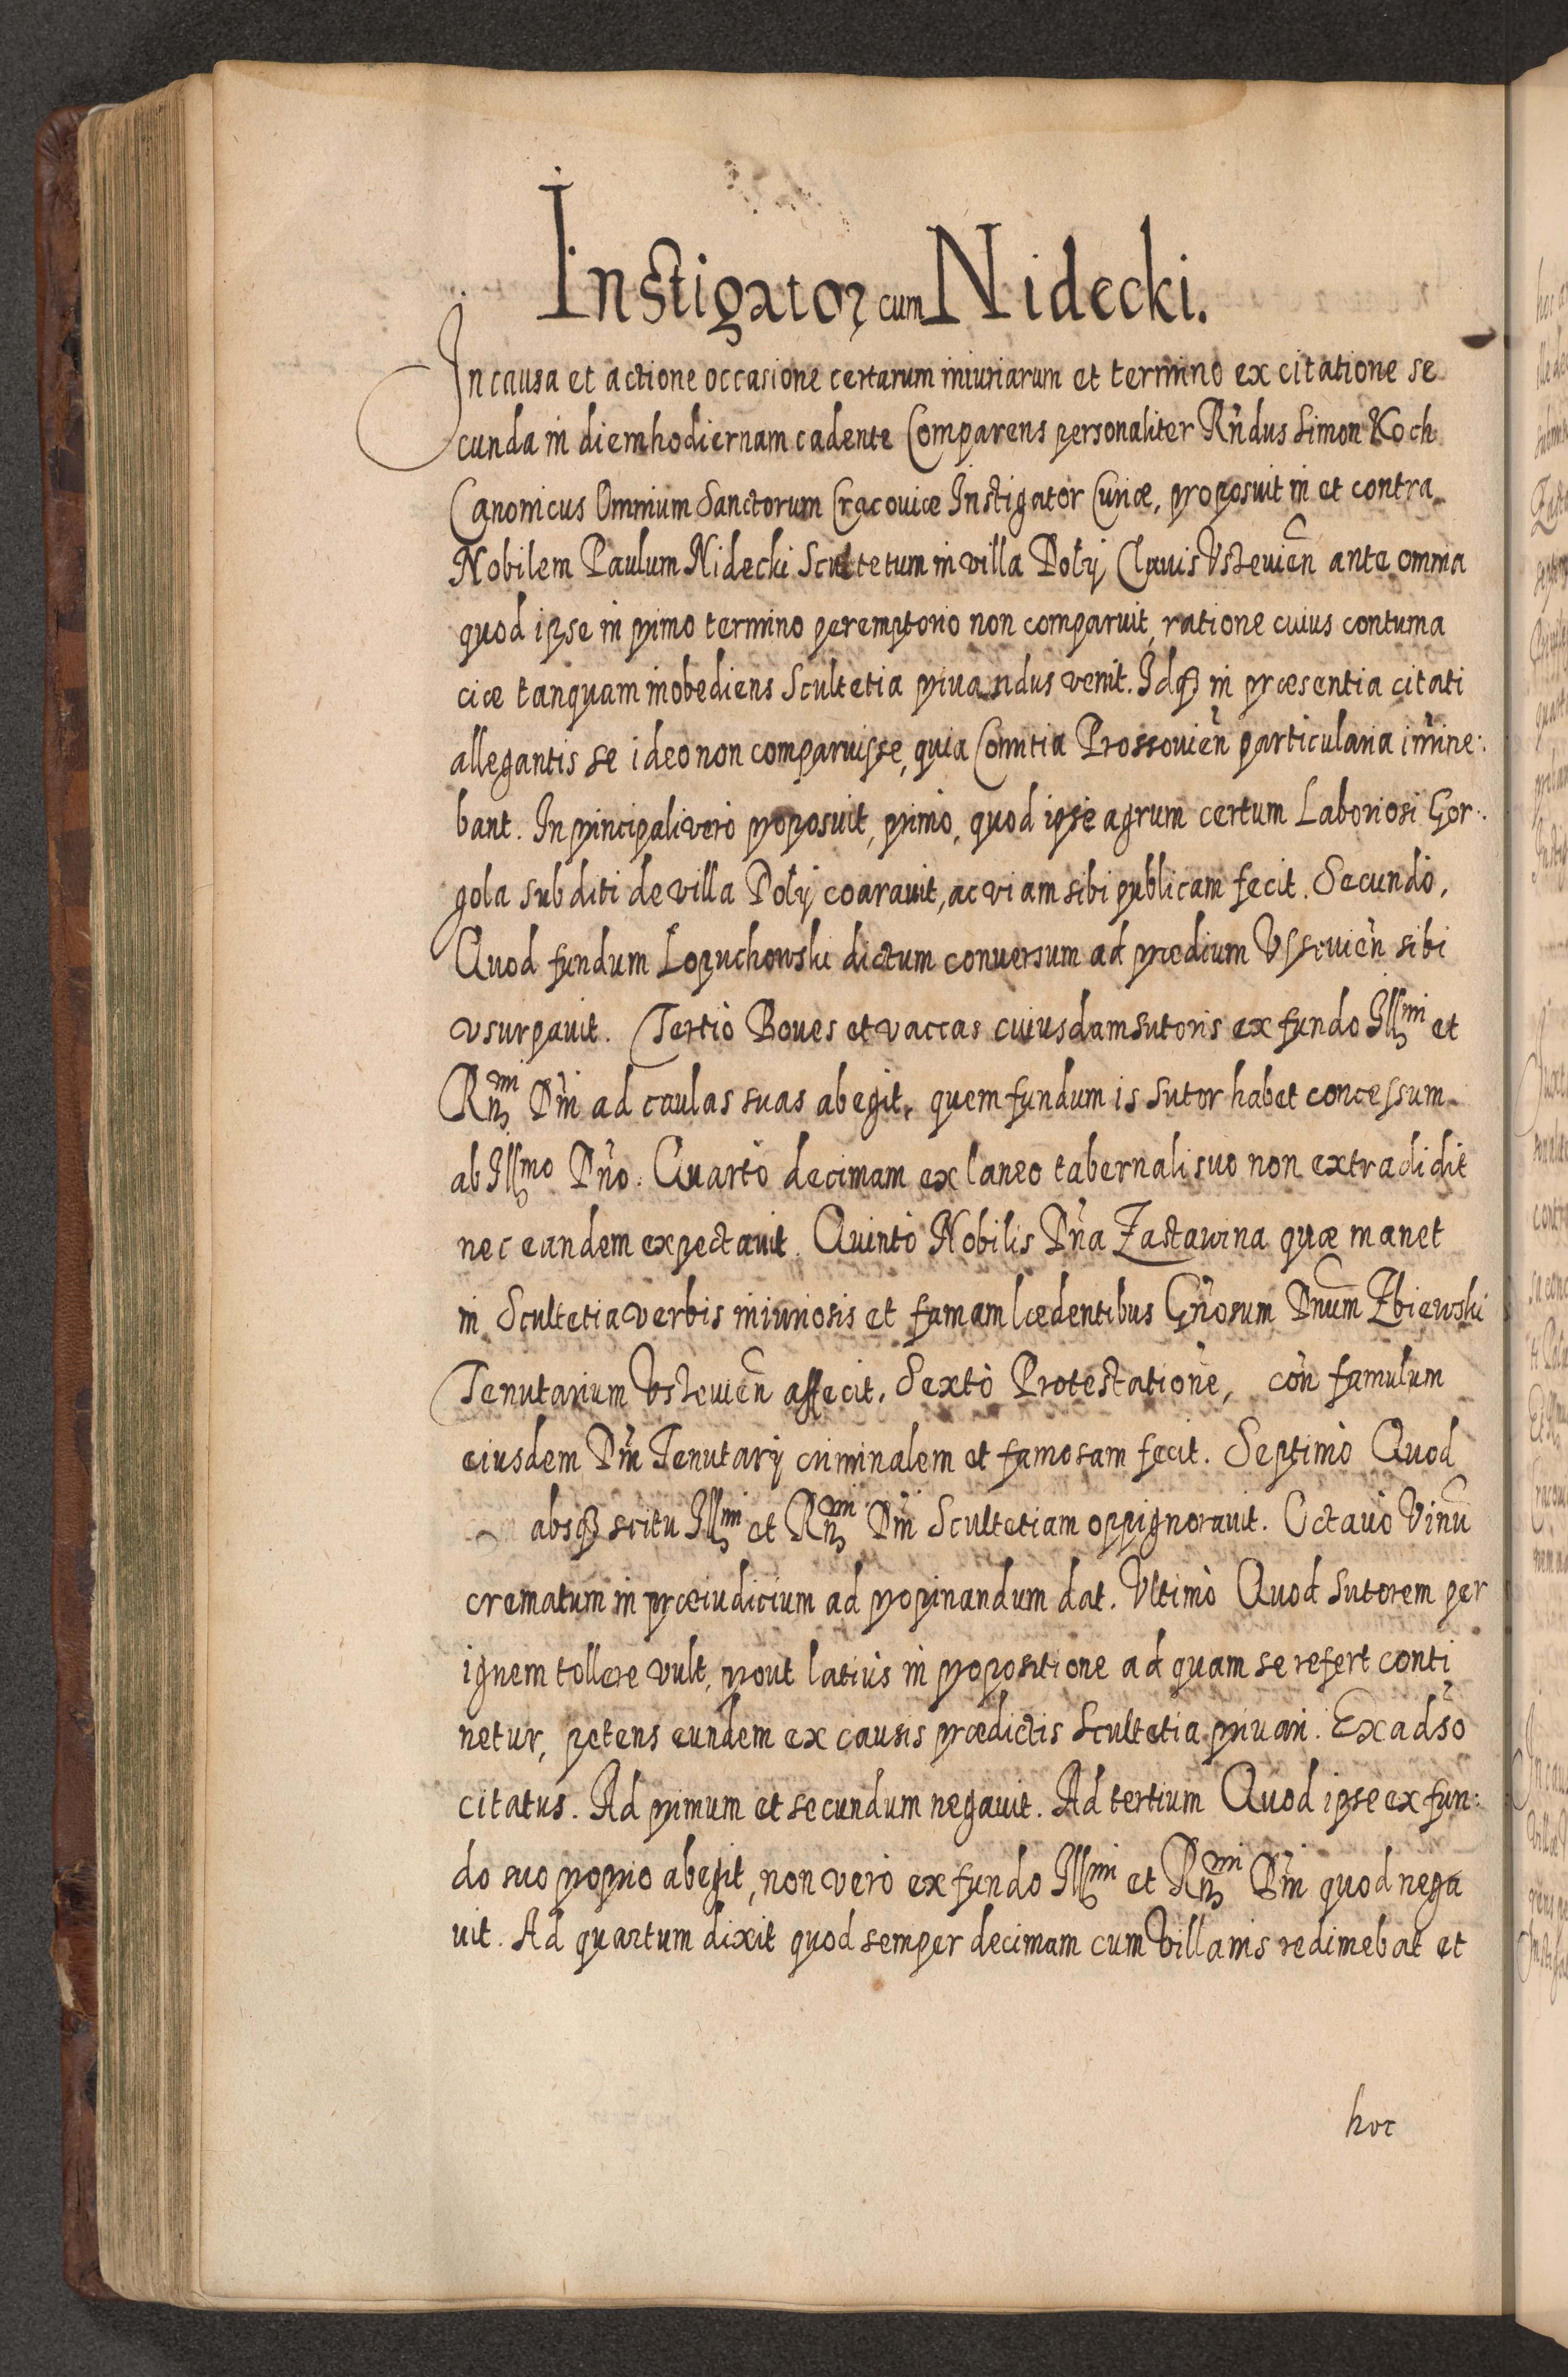 Instigator cum Nidecki.
In causa et actione occasione certarum iniuriarum et termino ex citatione se
cunda in diem hodiernam cadente Comparens personaliter Rñdus Simon Koch
Canonicus Omnium Sanctorum Cracoviæ Instigator Curiæ, proposuit in et contra
Nobilem Paulum Nidecki Scultetum in villa Doły Clavis Vsteuień ante omnia
quod ipse in primo termino peremptorio non comparuit, ratione cuius contuma
ciæ tanquam inobediens Scultetia privandus venit. Idq3 in præsentia citati
allegantis se ideo non comparuisse, quia Comitia Prossouień particularia im̃ine:
bant. In principali verò proposuit, primò, quod ipse agrum certum Laboriosi Gor:
gola subditi de villa Doły coarauit, ac viam sibi publicam fecit. Secundò,
Quod fundum Lopuchowski dictum conuersum ad prædium Vsseuień sibi
vsurpauit. Tertiò Boues et vaccas cuiusdam sutoris ex fundo Illmi et
Rñmi Dñi ad caulas suas abegit, quem fundum is sutor habet concessum
ab Illmo Dño. Quartò decimam ex laneo tabernali suo non extradidit
nec eandem expectauit. Quintò Nobilis Dña Zastawina quæ manet
in Scultetia verbis iniuriosis et famam lædentibus Gñosum Dnum̃ Zbiewski
Tenutarium Vsteuień affecit. Sextò Protestationẽ, coñ famulum
eiusdem Dñi Tenutarij criminalem et famosam fecit. Septimò Quod
absq3 scitu Illmi et Rñmi Dñi Scultetiam oppignorauit. Octauò Vinũ
crematum in præiudicium ad propinandum dat. Vltimò Quod sutorem per
ignem tollere vult, prout latius in propositione ad quam se refert conti
netur, petens eundem ex causis prædictis Scultetia priuari. Ex adṽso
citatus. Ad primum et secundum negauit. Ad tertium Quod ipse ex fun:
do suo proprio abegit, non verò ex fundo Illmi et Rñmi Dñi quod nega
uit. Ad quartum dixit quod semper decimam cum Villanis redimebat et
hoc